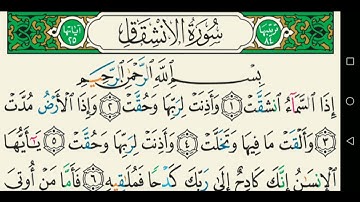 ترتيبها ٨٤ سُورَةُ الانشِقَاقِ آياتها ٢٥
بِسْمِ اللَّهِ الرَّحْمَٰنِ الرَّحِيمِ
إِذَا السَّمَاءُ انشَقَّتْ ١ وَأَذِنَتْ لِرَبِّهَا وَحُقَّتْ ٢ وَإِذَا الْأَرْضُ مُدَّتْ
٣ وَأَلْقَتْ مَا فِيهَا وَتَخَلَّتْ ٤ وَأَذِنَتْ لِرَبِّهَا وَحُقَّتْ ٥ يَٰٓأَيُّهَا
الْإِنسَٰنُ إِنَّكَ كَادِحٌ إِلَىٰ رَبِّكَ كَدْحًا فَمُلَٰقِيهِ ٦ فَأَمَّا مَنْ أُوتِيَ